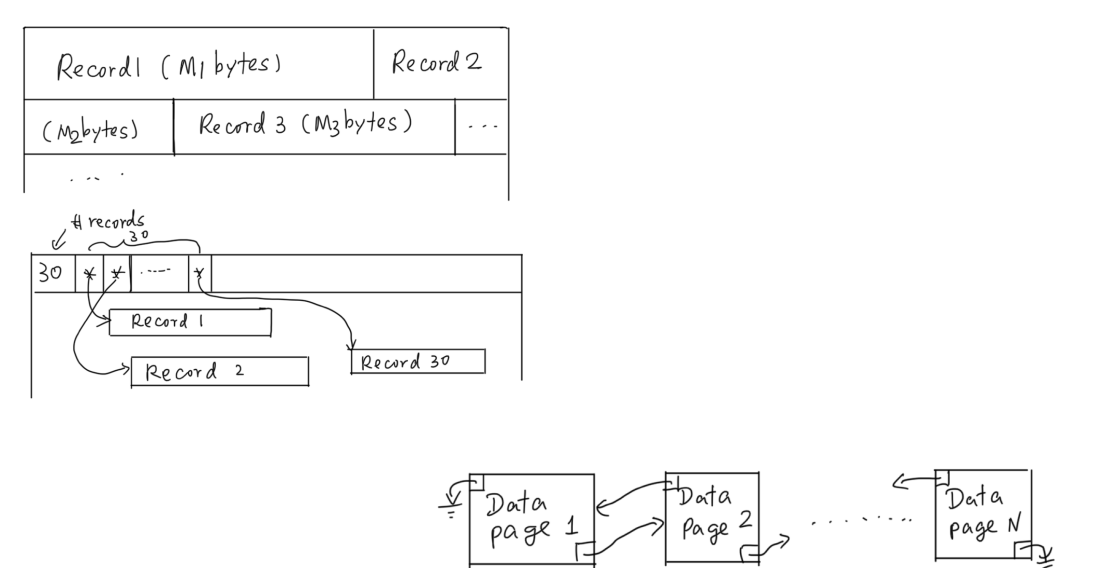 Record1 (M1 bytes) Record 2
(M2bytes) Record 3 (M3bytes) ...
....
# records
30
30 * * ..... *
Record 1
Record 2
Record 30
Data
page 1
Data
page 2
........
Data
page N